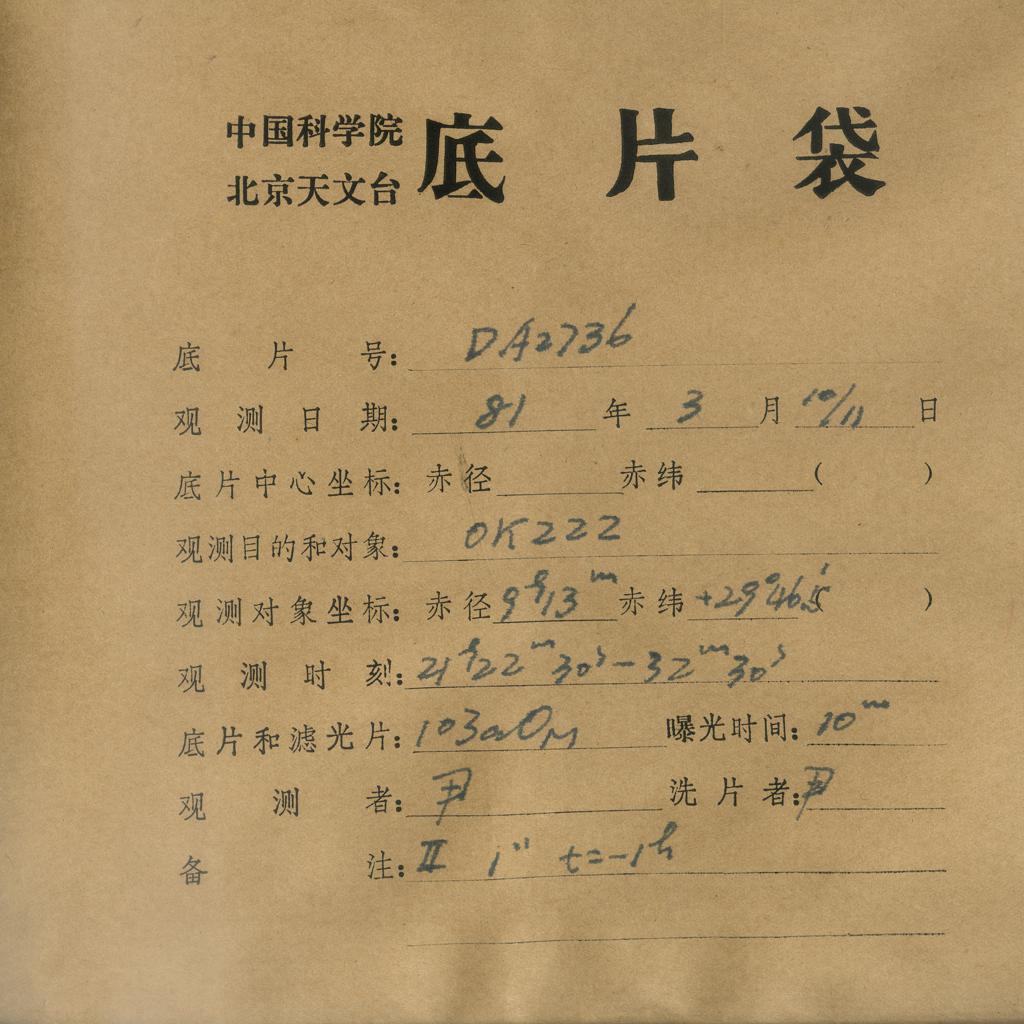 中国科学院
北京天文台
底片袋
底片号：DA2736
观测日期：81年3月10/11日
底片中心坐标：赤径 赤纬 ( )
观测目的和对象：OK222
观测对象坐标：赤径9h13m 赤纬+29°46.'5 )
观测时刻：21h22m30s-32m30s
底片和滤光片：103aO 曝光时间：10m
观测者：尹 洗片者：尹
备注：II 1" t=-1h